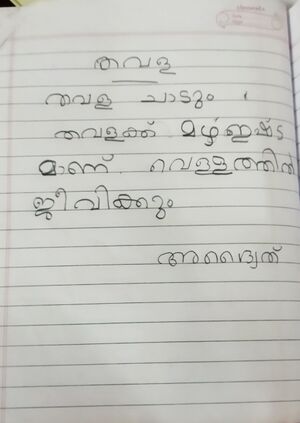 തവള
തവള ചാടും
തവളക്ക് മഴ്ഇഷ്ട
മാണ്. വെള്ളത്തിൽ
ജീവിക്കും
അദ്വൈത്